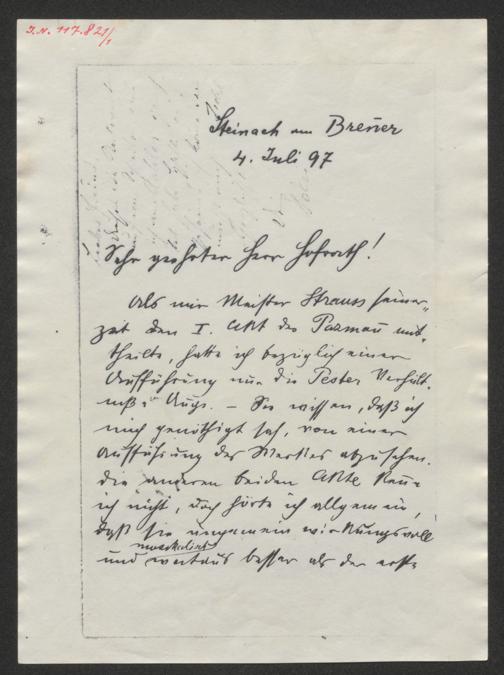 J.N. 117.821/1
Steinach am Brenner
4. Juli 97
Sehr geehrter Herr Hofrath!
Als mir Meister Strauss seiner„
zeit den I. Akt des Pazmán mit„
theilte, hatte ich bezüglich einer
Aufführung nur die Pester Verhält„
niße i. Auge. – Sie wissen, daß ich
mich genöthigt sah, von einer
Aufführung des Werkes abzusehen.
Die anderen beiden Akte kenne
ich nicht, doch hörte ich allgemein,
daß sie ungemein wirkungsvoll
musikalisch
und weitaus besser als der erste